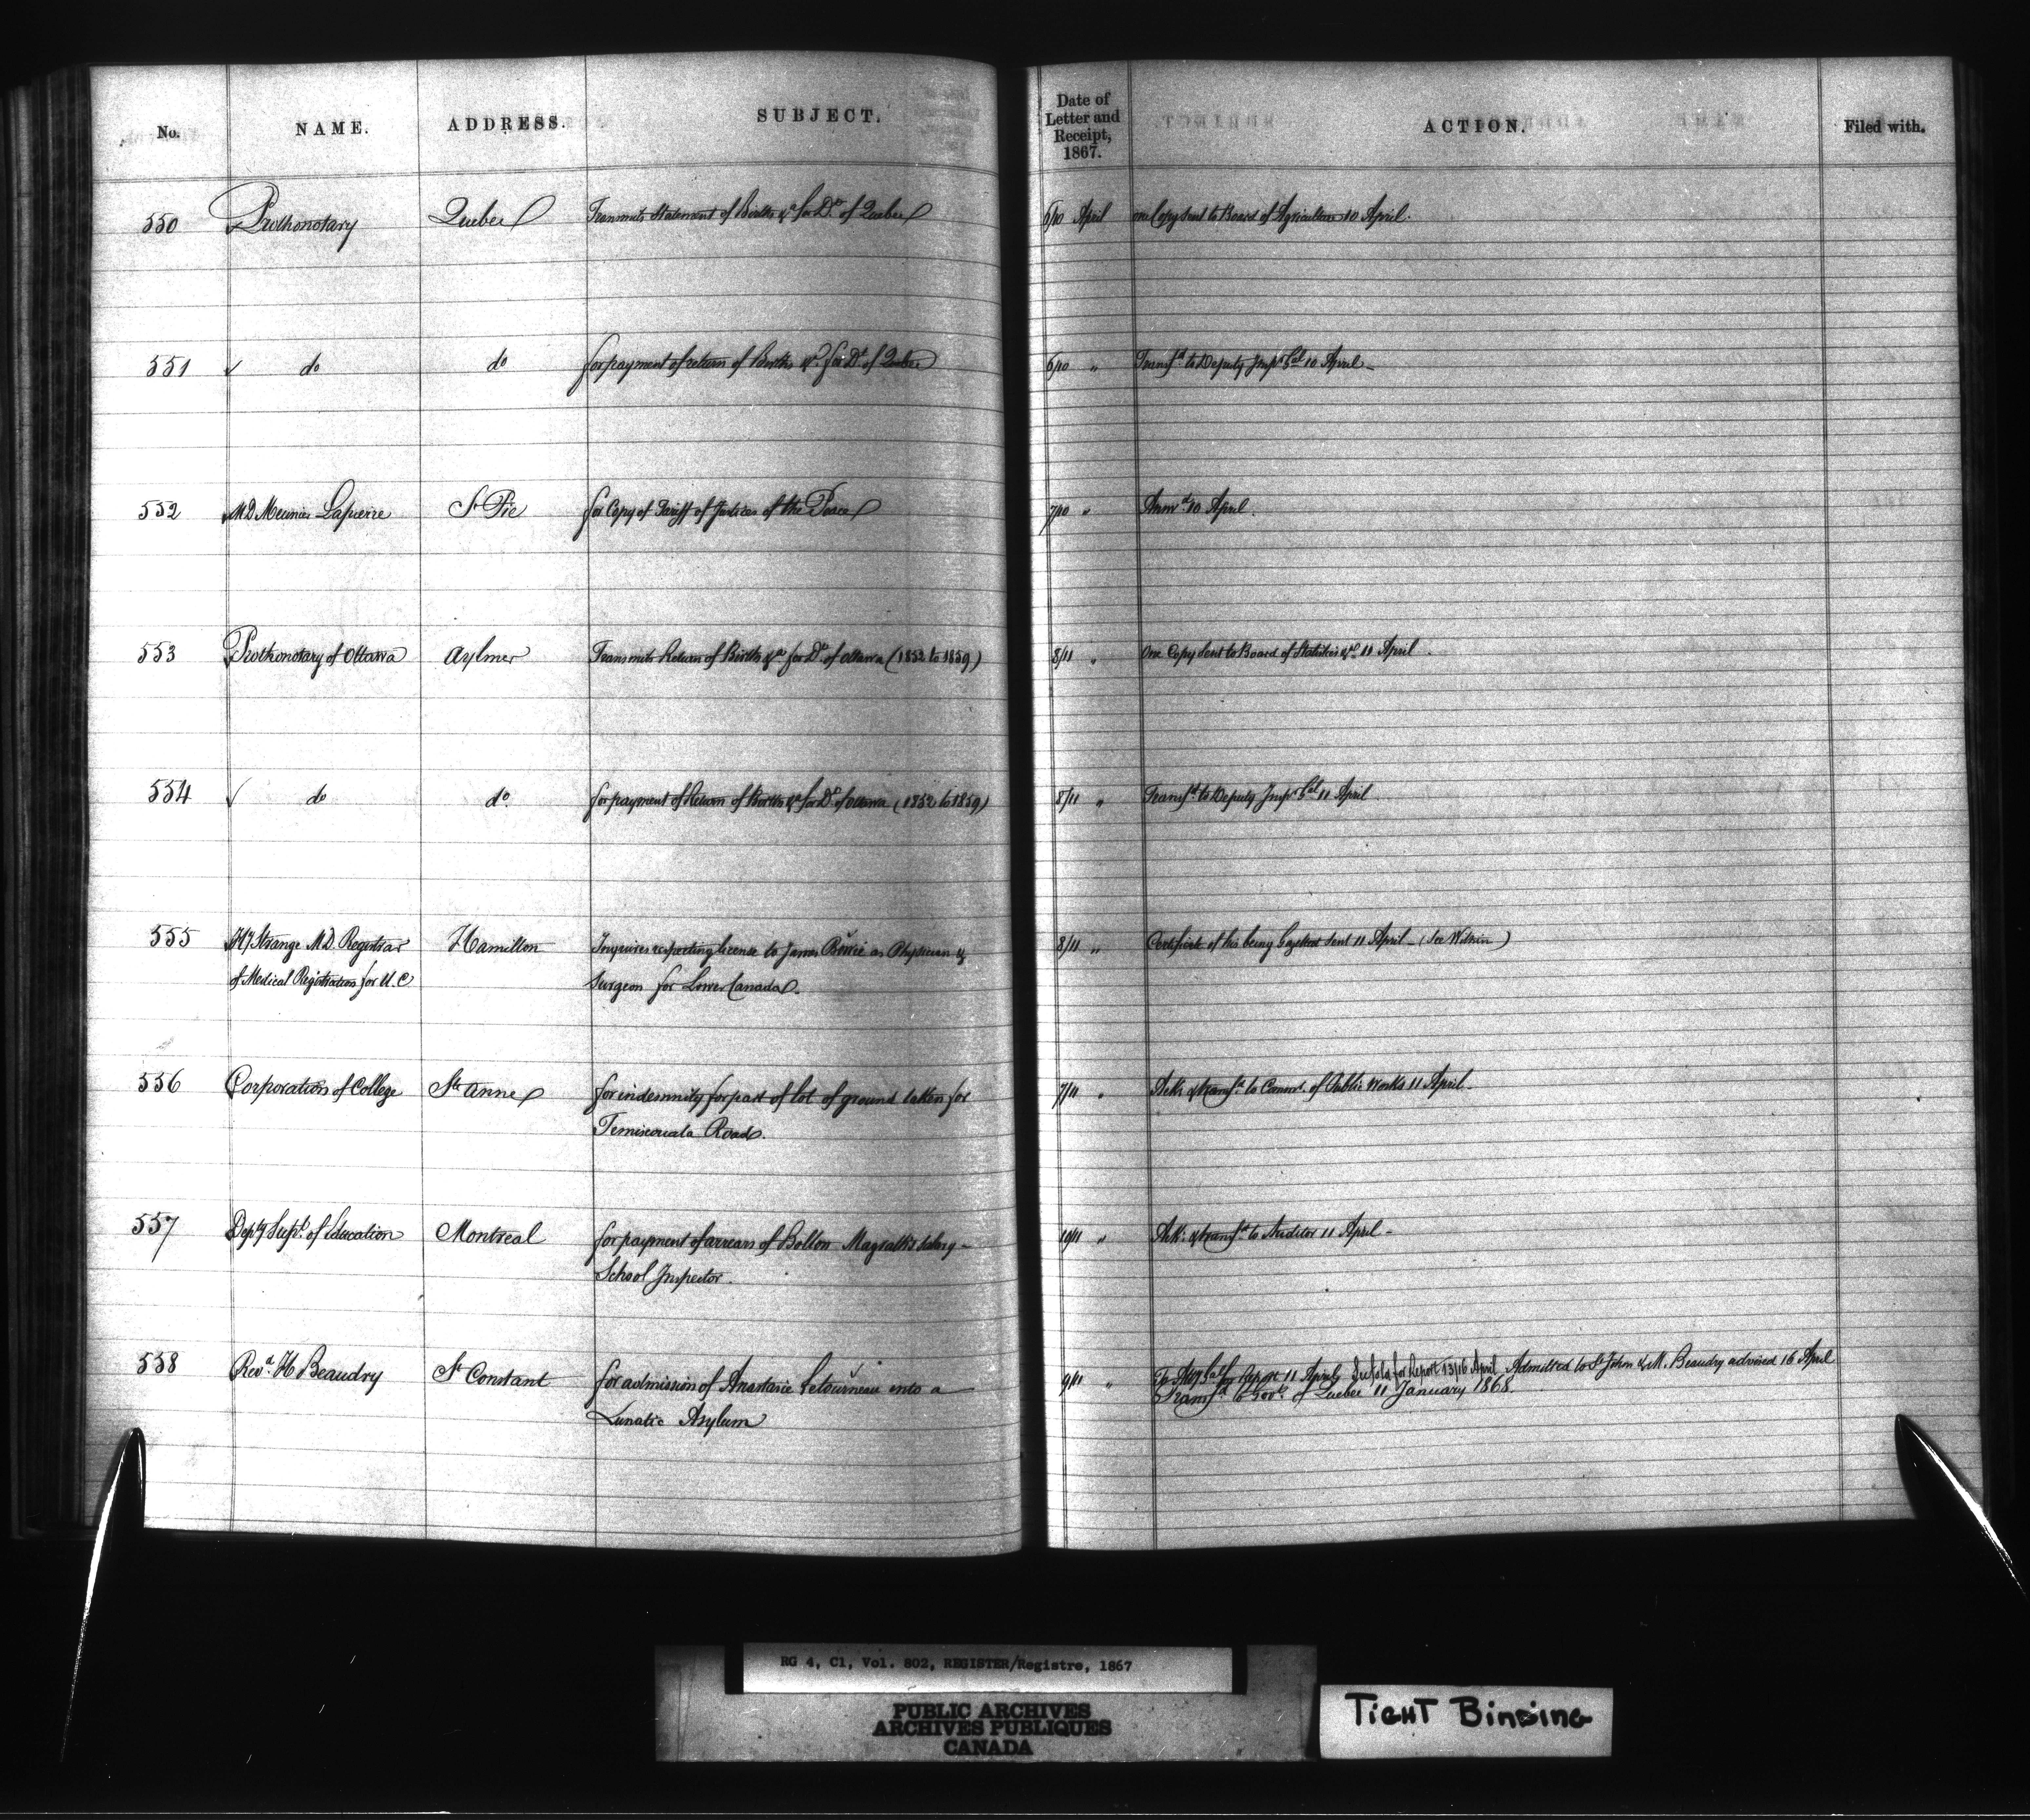 No. NAME. ADDRESS. SUBJECT. Date of Letter and Receipt, 1867. ACTION. Filed with.
550 Prothonotary Quebec Transmits Statement of Births &a for Dt of Quebec 6/10 April one Copy sent to Board of Agriculture 10 April.
551 ✓ do do for payment of return of Births &a for Dt of Quebec 6/10 " Transfd to Deputy Inspr Gal 10 April
552 M D Meunier Lapierre St Pie for Copy of Tariff of Justices of the Peace 7/10 " Answd 10 April.
553 Prothonotary of Ottawa Aylmer Transmits Return of Births &a for Dt of Ottawa (1852 to 1859) 8/11 " One Copy sent to Board of Statistics &a 11 April.
554 ✓ do do for payment of Return of Births &a for Dt of Ottawa (1852 to 1859) 8/11 " Transfd to Deputy Inspr Gal 11 April
555 Hy Strange M.D. Registrar Hamilton Inquires respecting license to James Bowie as Physician & 8/11 " Certificate of his being Gazetted sent 11 April - (See Within)
of Medical Registration for U.C Surgeon for Lower Canada.
556 Corporation of College Ste Anne for indemnity for part of lot of ground taken for 7/11 " Ack. & transfd to Commr. of Public Works 11 April
Temiscouata Road.
557 Depty Supt. of Education Montreal for payment of arrears of Bolton Magrath's salary - 10/11 " Ack. & transfd to Auditor 11 April -
School Inspector.
558 Revd. H Beaudry St Constant for admission of Anastasie Letourneau into a 9/11 " To for Report 11 April for Report 13/16 April Admitted to St John & M. Beaudry advised 16 April
Lunatic Asylum Transfd to Govt. of Quebec 11 January 1868.
RG 4, C1, Vol. 802, REGISTER/Registre, 1867
PUBLIC ARCHIVES
ARCHIVES PUBLIQUES
CANADA
TIGHT BINDING